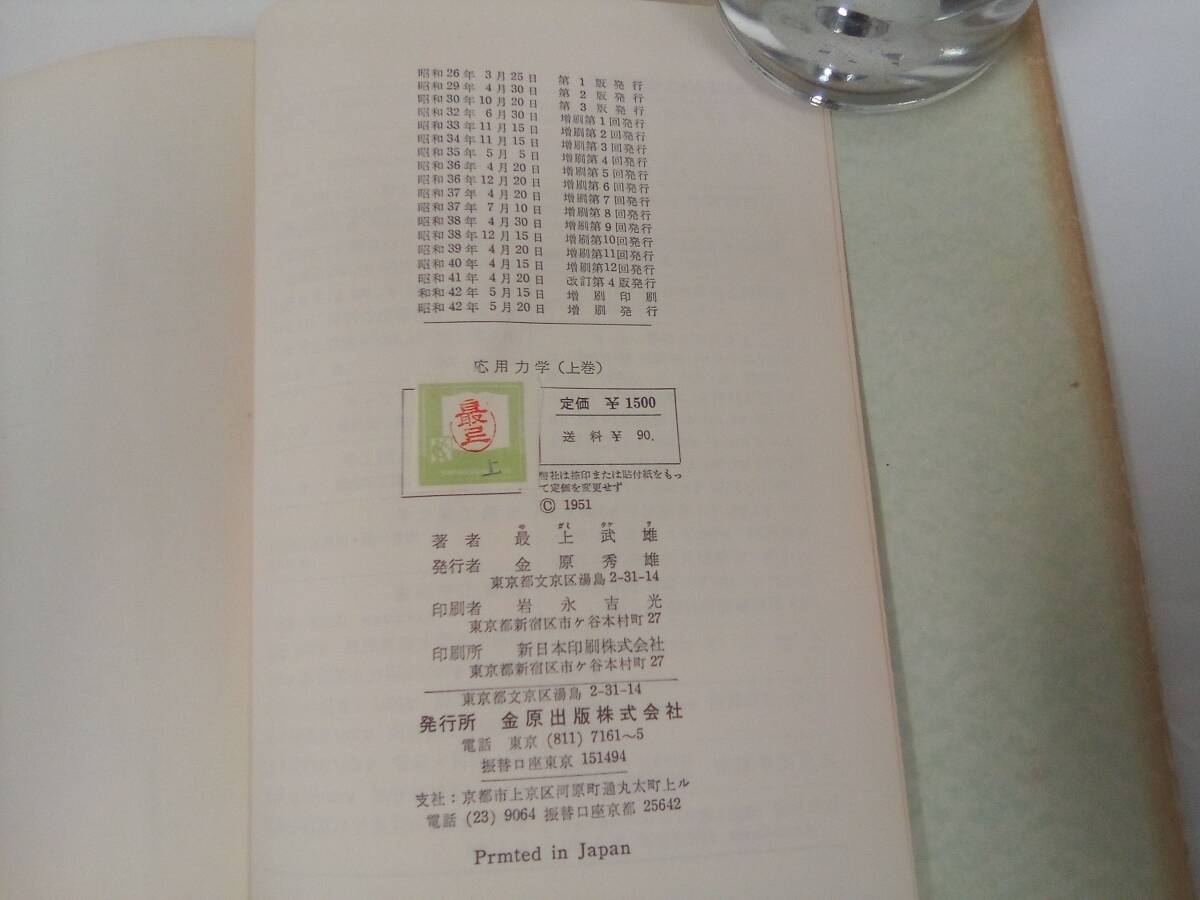 昭和26年 3月25日 第1版発行
昭和29年 4月30日 第2版発行
昭和30年10月20日 第3版発行
昭和32年 6月30日 増刷第1回発行
昭和33年11月15日 増刷第2回発行
昭和34年11月15日 増刷第3回発行
昭和35年 5月 5日 増刷第4回発行
昭和36年 4月20日 増刷第5回発行
昭和36年12月20日 増刷第6回発行
昭和37年 4月20日 増刷第7回発行
昭和37年 7月10日 増刷第8回発行
昭和38年 4月30日 増刷第9回発行
昭和38年12月15日 増刷第10回発行
昭和39年 4月20日 増刷第11回発行
昭和40年 4月15日 増刷第12回発行
昭和41年 4月20日 改訂第4版発行
和和42年 5月15日 増刷印刷
昭和42年 5月20日 増刷発行
応用力学(上巻)
定価 ¥1500
送料¥ 90.
上
弊社は捺印または貼付紙をもっ
て定価を変更せず
© 1951
も がし タケ ヲ
著者 最上武雄
発行者 金原秀雄
東京都文京区湯島2-31-14
印刷者 岩永吉光
東京都新宿区市ケ谷本村町27
印刷所 新日本印刷株式会社
東京都新宿区市ケ谷本村町27
東京都文京区湯島 2-31-14
発行所 金原出版株式会社
電話 東京 (811) 7161~5
振替口座東京 151494
支社:京都市上京区河原町通丸太町上ル
電話 (23) 9064 振替口座京都 25642
Prmted in Japan